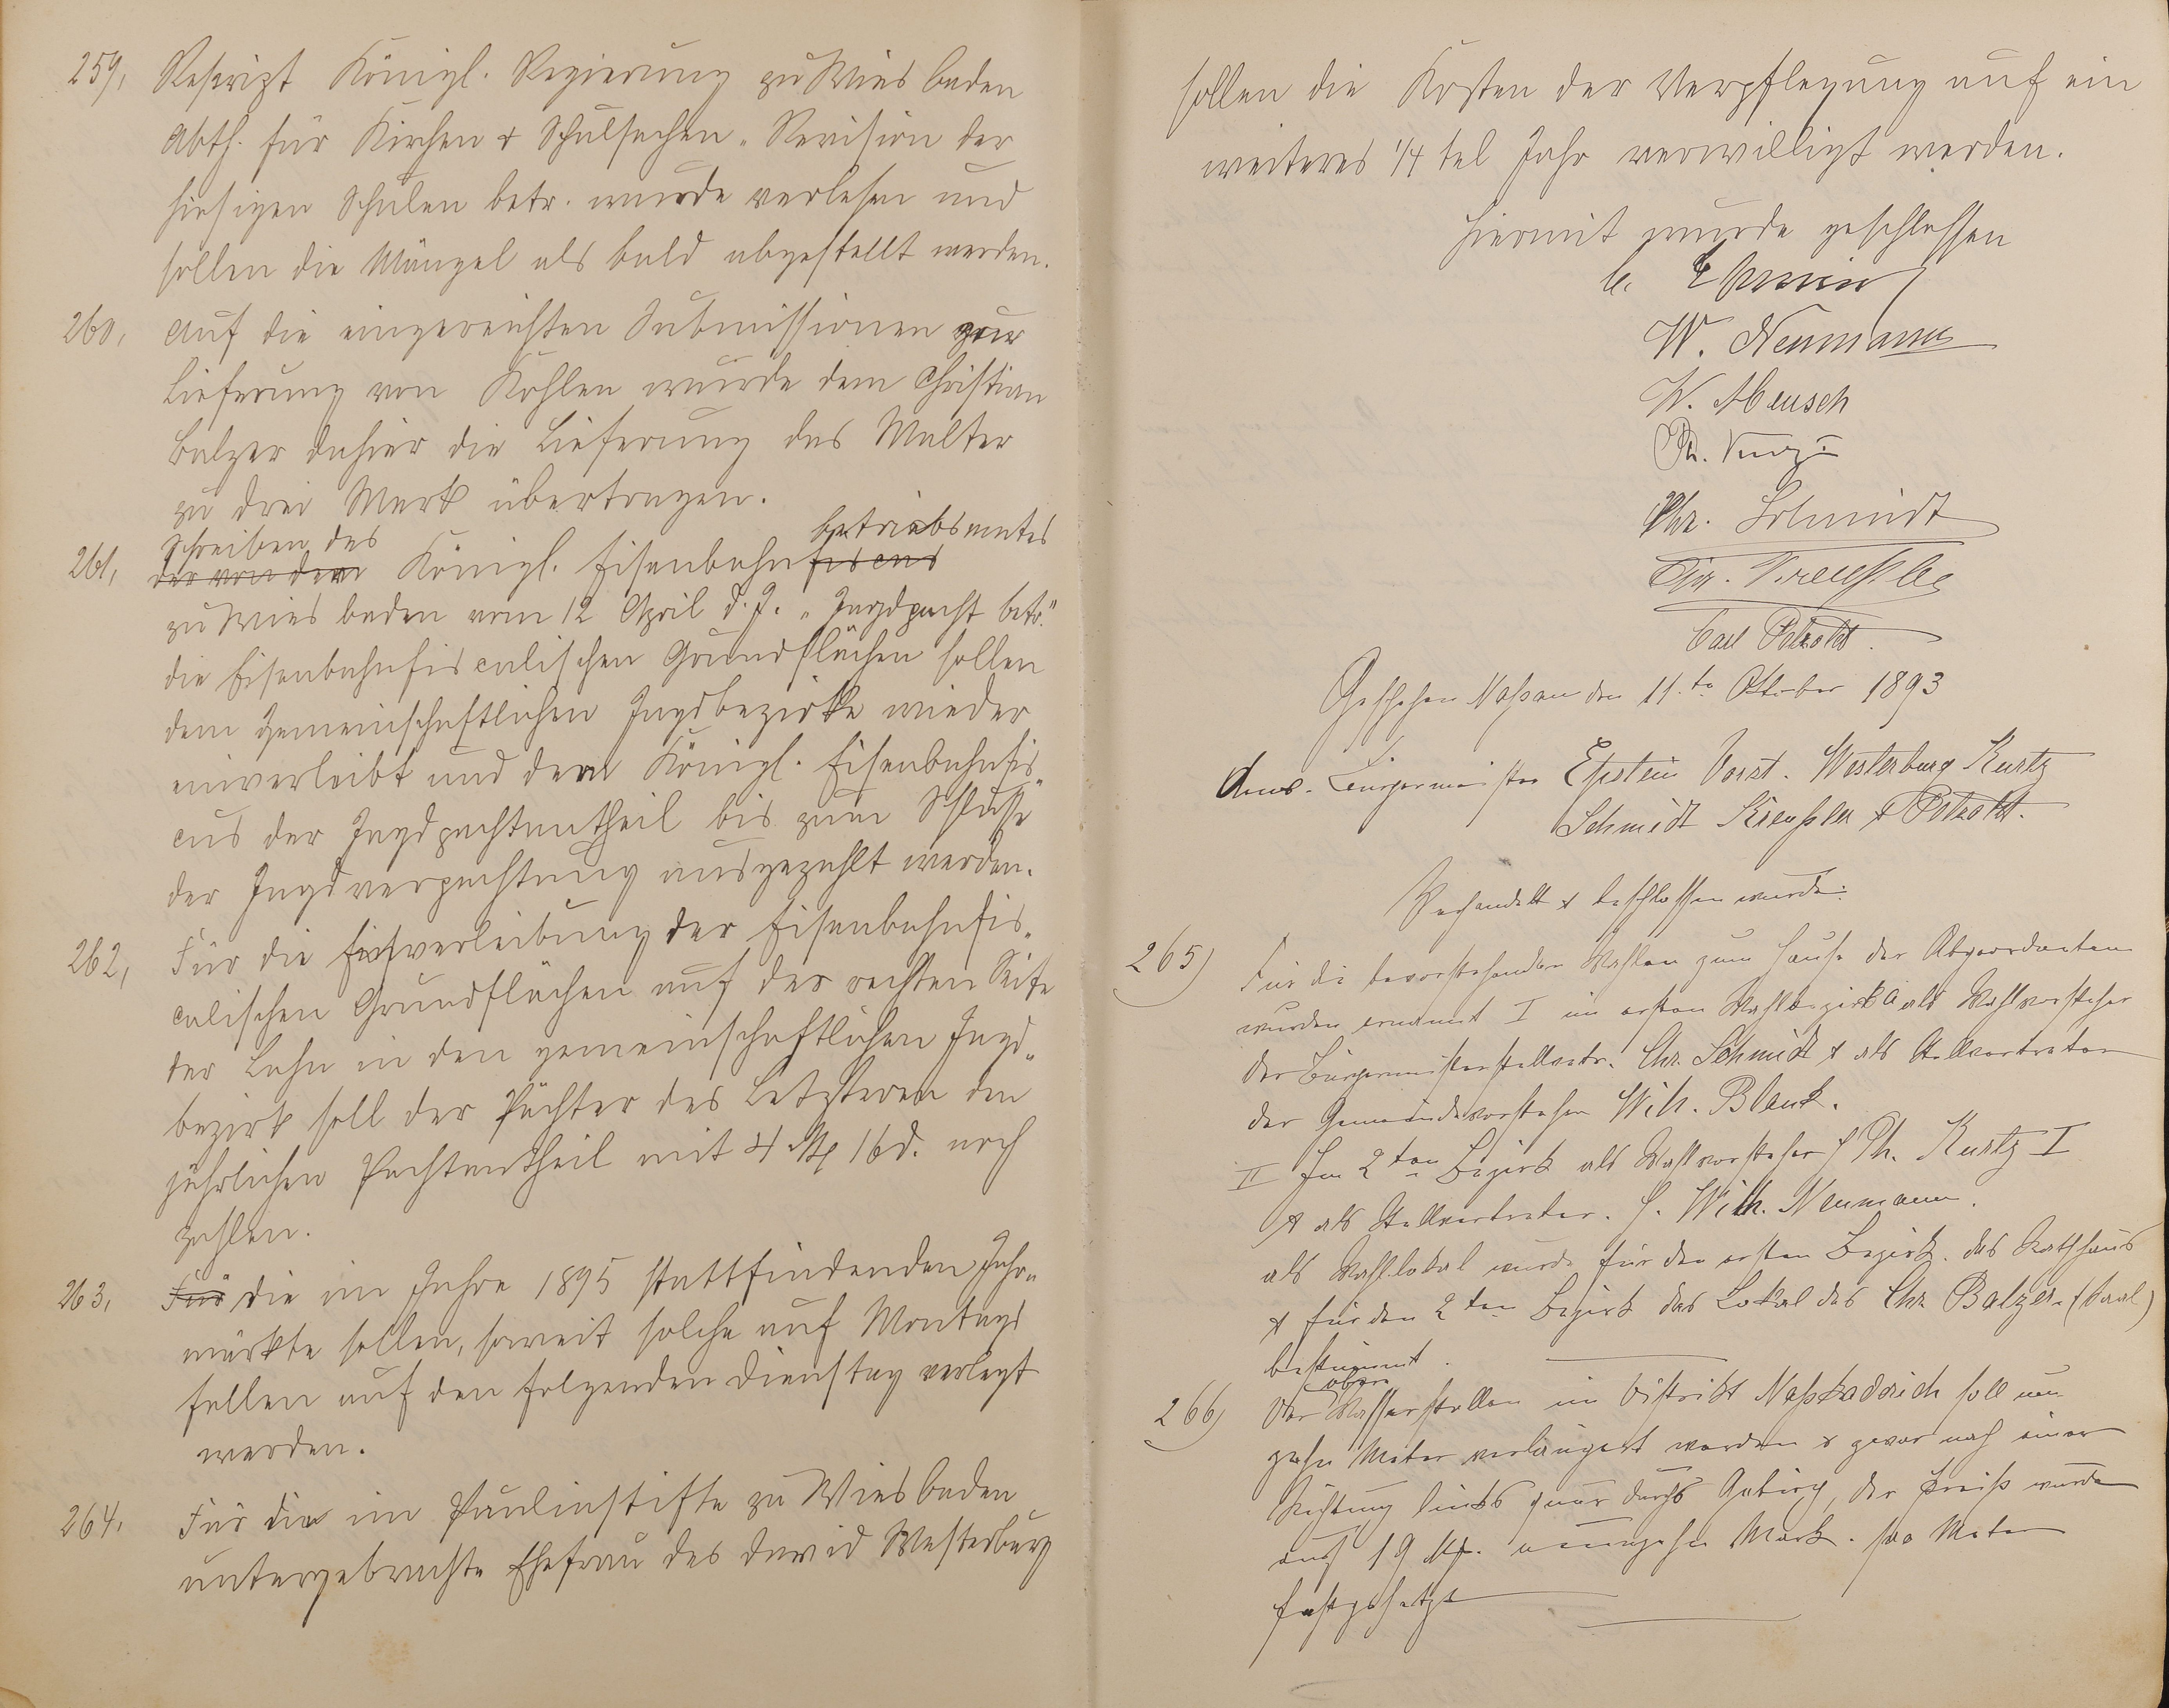 259, Reskript Königl. Regierung zu Wiesbaden
Abth. für Kirchen & Schulsachen „Revision der
hiesigen Schulen betr. wurde verlesen und
sollen die Mängel als bald abgestellt werden.
260, Auf die eingereichten Submissionen zur
Lieferung von Kohlen wurde dem Christian
Balzer dahier die Lieferung das Malter
zu drei Mark übertragen.
Schreiben des betriebsamtes
261, der von dem Königl. Eisenbahnfiscus
zu Wiesbaden vom 12 April d. J. „Jagdpacht betr."
die Eisenbahnfiscalischen Grundflächen sollen
dem gemeinschaftlichen Jagdbezirke wieder
einverleibt und dem Königl. Eisenbahnfis„
cus der Jagdpachtantheil bis zum Schlusse
der Jagdverpachtung ausgezahlt werden.
262, Für die Einverleibung der Eisenbahnfis„
calischen Grundflächen auf der rechten Seite
der Lahn in den gemeinschaftlichen Jagd„
bezirk soll der Pächter des Letzteren den
jährlichen Pachtantheil mit 4 M 16 d. noch
zahlen.
263, Für die im Jahre 1895 stattfindenden Jahr„
märkte sollen, soweit solche auf Montags
fallen auf den folgenden Dienstag verlegt
werden.
264, Für die im Paulinstifte zu Wiesbaden
untergebrachte Ehefrau des David Westerburg
sollen die Kosten der Verpflegung auf ein
weiteres 1/4 tel Jahr verwilligt werden.
Hiermit wurde geschlossen
W. Neumann
W. Mensch
Chr. Schmidt
Carl Potzoldt.
Geschehen Nassau den 11.te Oktober 1893
Anw. Bürgermeister Epstein Vorst. Westerburg Kurtz
Schmidt Kreußler & Potzoldt.
Verhandelt & beschlossen wurde:
265) Für die bevorstehenden Wahlen zum Hause der Abgeordneten
wurden ernannt I im ersten Wahlbezirk als Wahlvorsteher
der Bürgermeisterstellvertr. Chr. Schmidt & als Stellvertreter
der Gemeindevorsteher Wilh. Blank.
II Im 2ten Bezirk als Wahlvorsteher H Ph. Kurtz I
& als Stellvertreter. H. Wilh. Neumann.
als Wahllokal wurde für den ersten Bezirk. das Rathhaus
& für den 2ten Bezirk das Lokal des Chr. Balzer. (Saal)
bestimmt.
obere
266) Der Wasserstollen im Distrikt soll um
zehn Meter verlängert werden & zwar nach einer
Richtung links quer durchs Gebirg, der Preiß wurde
auf 19 M. neunzehn Mark. pro Meter
festgesetzt